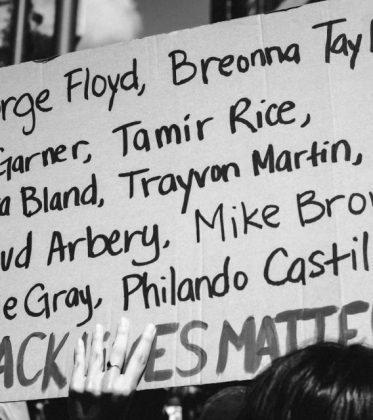 rge Floyd, Breonna Tayl
Garner, Tamir Rice,
a Bland, Trayvon Martin,
ud Arbery, Mike Bro
e Gray, Philando Castil
ACK LIVES MATTE